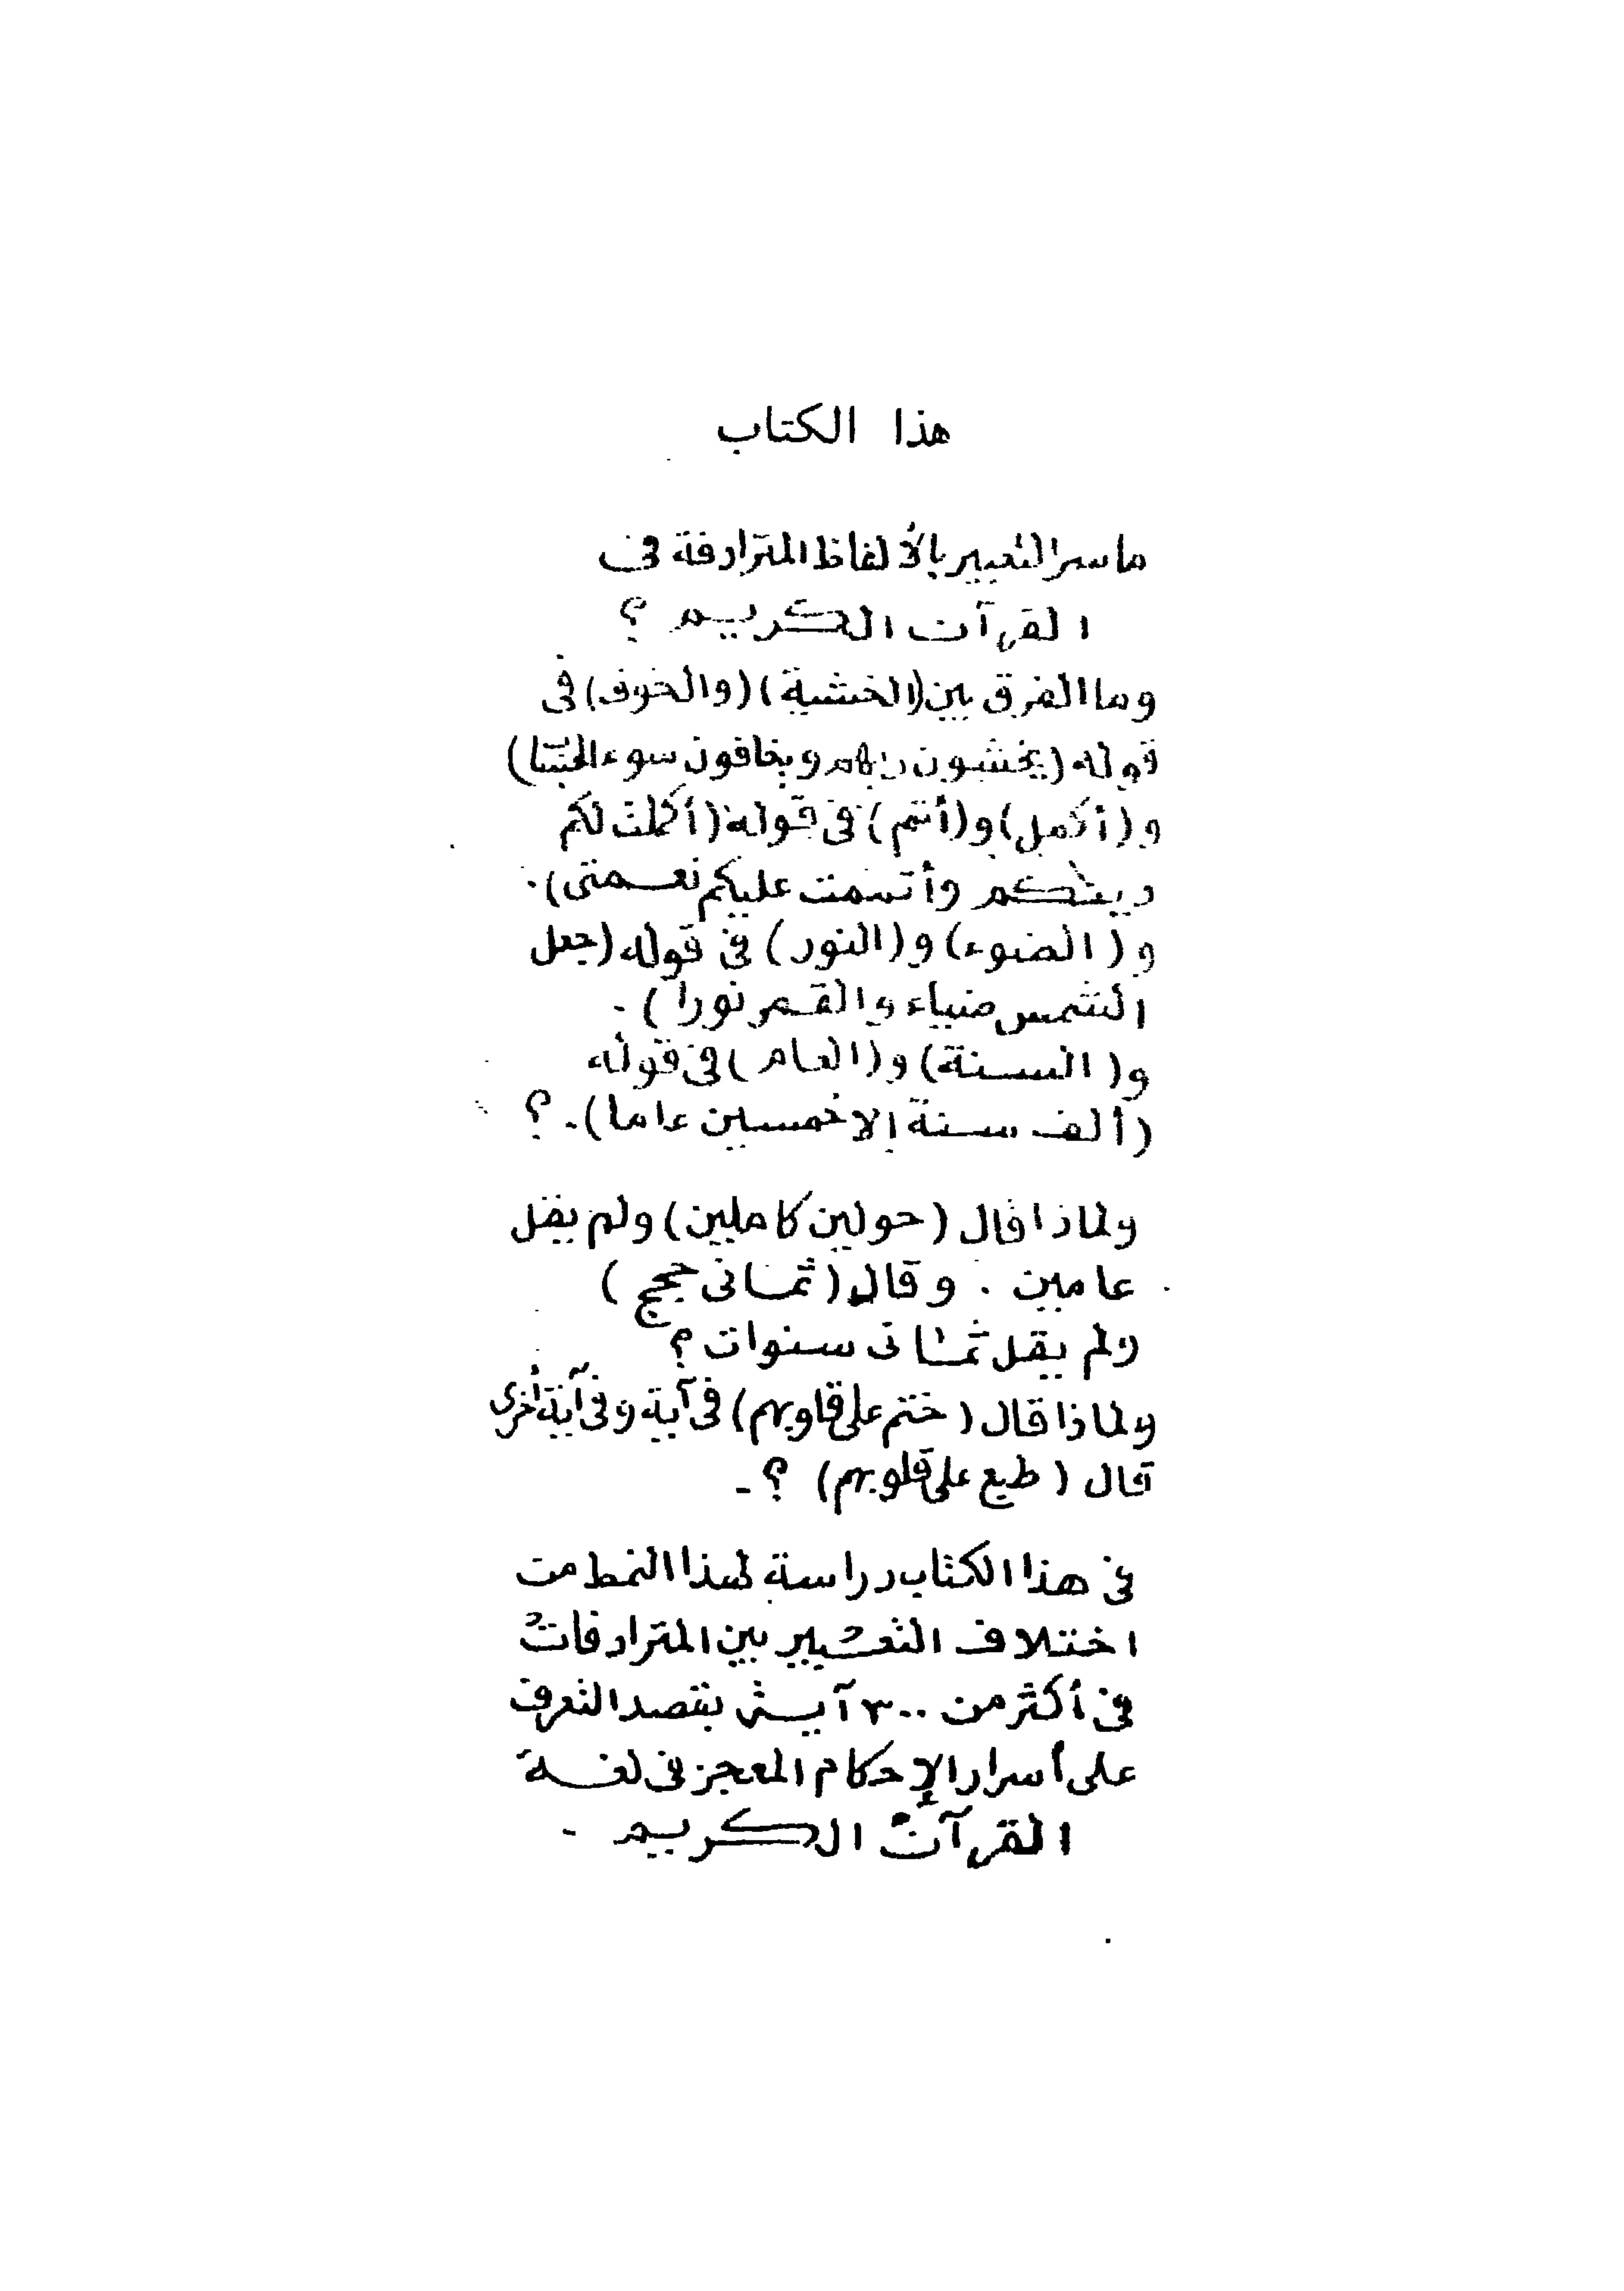 هذا الكتاب
ما سر التعبير بالألفاظ المترادفة فى
القرآن الكريم ؟
وما الفرق بين (الخشية) (والخوف) فى
قوله (يخشون ربهم ويخافون سوء الحساب)
و (أكمل) و (أتم) فى قوله (أكملت لكم
دينكم وأتممت عليكم نعمتى).
و (الضوء) و (النور) فى قوله (جعل
الشمس ضياء والقمر نورا) -
و (السنة) و (العام) فى قوله
(ألف سنة إلا خمسين عاما). ؟
ولماذا قال (حولين كاملين) ولم يقل
عامين . وقال (ثمانى حجج)
ولم يقل ثمانى سنوات ؟
ولماذا قال (ختم على قلوبهم) فى آية وفى آية أخرى
قال (طبع على قلوبهم) ؟ -
فى هذا الكتاب دراسة لهذا النمط من
اختلاف التعبير بين المترادفات
فى أكثر من ٣٠٠ آية بقصد التعرف
على أسرار الإحكام المعجز فى لغة
القرآن الكريم -